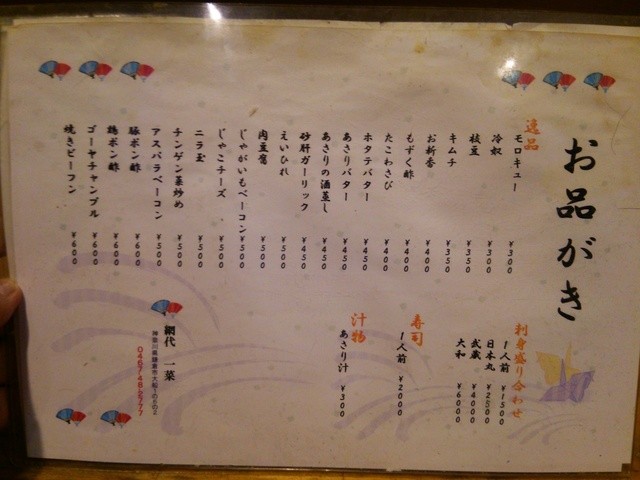 お品がき
逸品
モロキュー ¥300
冷奴 ¥300
枝豆 ¥350
キムチ ¥350
お新香 ¥400
もずく酢 ¥400
たこわさび ¥400
ホタテバター ¥450
あさりバター ¥450
あさりの酒蒸し ¥450
砂肝ガーリック ¥450
えいひれ ¥500
肉豆腐 ¥500
じゃがいもベーコン ¥500
じゃこチーズ ¥500
ニラ玉 ¥500
チンゲン菜炒め ¥500
アスパラベーコン ¥500
豚ポン酢 ¥600
鶏ポン酢 ¥600
ゴーヤチャンプル ¥600
焼きビーフン ¥600
刺身盛り合わせ
1人前 ¥1500
日本丸 ¥2500
武蔵 ¥4000
大和 ¥6000
寿司
1人前 ¥2000
汁物
あさり汁 ¥300
網代 一菜
神奈川県鎌倉市大船1の6の2